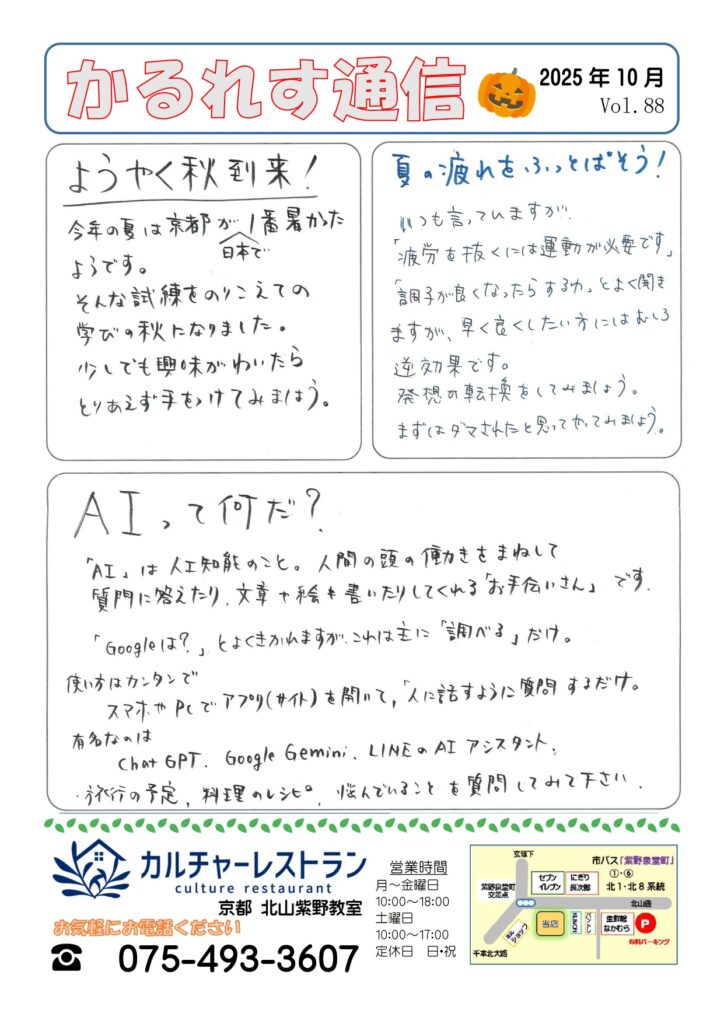 かるれす通信
2025年10月
Vol.88
ようやく秋到来！
今年の夏は京都が1番暑かった
日本で
ようです。
そんな試練をのりこえての
学びの秋になりました。
少しでも興味がわいたら
とりあえず手をつけてみましょう。
夏の疲れをふっとばそう！
いつも言っていますが、
「疲労を抜くには運動が必要です」
「調子が良くなったらするわ」とよく聞き
ますが、早く良くしたい方にはむしろ
逆効果です。
発想の転換をしてみましょう。
まずはダマされたと思ってやってみましょう。
AIって何だ？
「AI」は人工知能のこと。人間の頭の働きをまねして
質問に答えたり、文章や絵を書いたりしてくれる「お手伝いさん」です。
「Googleは？」とよくきかれますが、これは主に「調べる」だけ。
使い方はカンタンで
スマホやPCでアプリ(サイト)を開いて、「人に話すように質問するだけ。
有名なのは
Chat GPT、Google Gemini、LINEのAIアシスタント、
・旅行の予定、料理のレシピ、悩んでいることを質問してみて下さい。
カルチャーレストラン
culture restaurant
京都 北山紫野教室
お気軽にお電話ください
075-493-3607
営業時間
月～金曜日
10:00～18:00
土曜日
10:00～17:00
定休日 日・祝
玄琢下
市バス「紫野泉堂町」
①・⑥
北1・北8系統
セブン
イレブン
にぎり
長次郎
紫野泉堂町
交差点
北山通
当店
生鮮館
なかむら
P
有料パーキング
千本北大路